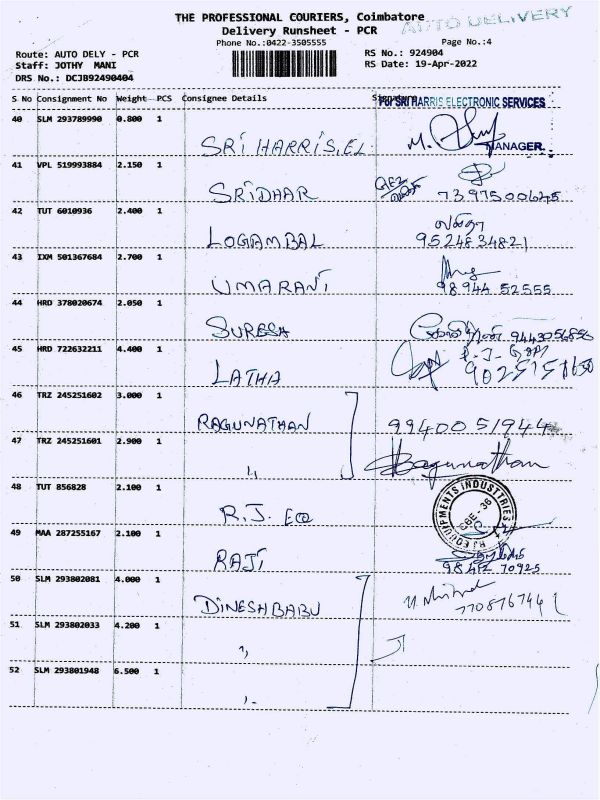 THE PROFESSIONAL COURIERS, Coimbatore
AUTO DELIVERY
Delivery Runsheet - PCR
Phone No.:0422-3505555
Page No.:4
Route: AUTO DELY - PCR
RS No.: 924904
Staff: JOTHY MANI
RS Date: 19-Apr-2022
DRS No.: DCJB92490404
S No Consignment No Weight PCS Consignee Details Signature
For SRI HARRIS ELECTRONIC SERVICES
40 SLM 293789990 0.800 1 SRI HARRIS.EL
MANAGER.
41 VPL 519993884 2.150 1 SRIDHAR 7397500645
42 TUT 6010936 2.400 1 LOGAMBAL லதா
9524834821
43 IXM 501367684 2.700 1 UMARANI 98944 52555
44 HRD 378020674 2.050 1 SURESH 9443056856
45 HRD 722632211 4.400 1 LATHA
46 TRZ 245251602 3.000 1 RAGUNATHAN 9940051944
47 TRZ 245251601 2.900 1 " Ragunathan
48 TUT 856828 2.100 1 R.J. EQ
RJ EQUIPMENTS INDUSTTRIES
CBE. 36
49 MAA 287255167 2.100 1 RAJI
50 SLM 293802081 4.000 1 DINESHBABU
51 SLM 293802033 4.200 1 "
52 SLM 293801948 6.500 1 "